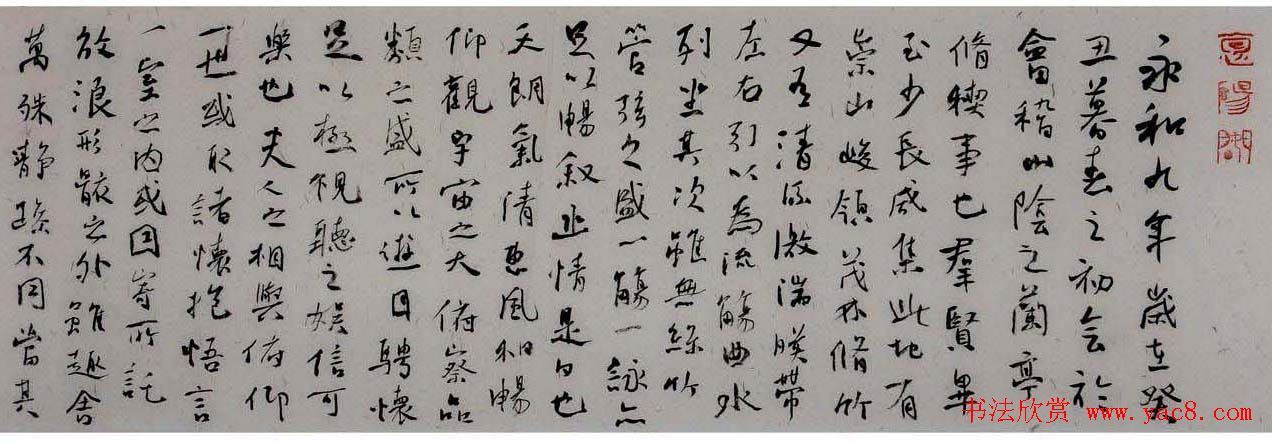 永和九年歲在癸
丑暮春之初会於
會稽山陰之蘭亭
脩稧事也羣賢畢
至少長咸集此地有
崇山峻領茂林脩竹
又有清流激湍暎帶
左右引以為流觴曲水
列坐其次雖無絲竹
管弦之盛一觴一詠亦
足以暢叙幽情是日也
天朗氣清惠風和暢
仰觀宇宙之大俯察品
類之盛所以遊目騁懷
足以極視聽之娛信可
樂也夫人之相與俯仰
一世或取諸懷抱悟言
一室之内或因寄所託
放浪形骸之外雖趣舍
萬殊靜躁不同當其
书法欣赏 www.yac8.com